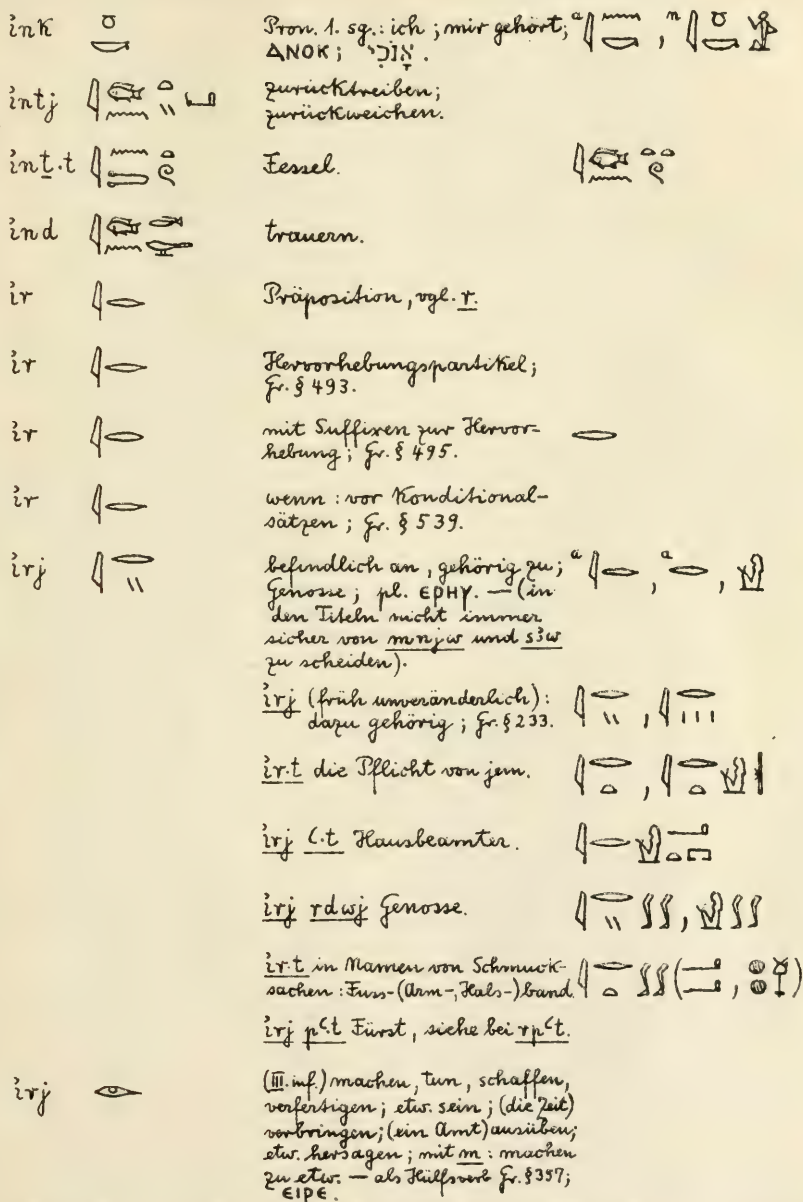 i҆nk 𓏌𓎡 Pron. 1. sg.: ich; mir gehört; ᵃ𓇋𓈖𓎡, ⁿ𓇋𓏌𓎡𓀀
ⲀⲚⲞⲔ; אָנֹכִי.
i҆ntj zurücktreiben;
zurückweichen.
i҆nṯ·t Fessel.
i҆nd trauern.
i҆r 𓇋𓂋 Präposition, vgl. r.
i҆r 𓇋𓂋 Hervorhebungspartikel;
Gr. § 493.
i҆r 𓇋𓂋 mit Suffixen zur Hervor- 𓂋
hebung; Gr. § 495.
i҆r 𓇋𓂋 wenn: vor Konditional-
sätzen; Gr. § 539.
i҆rj 𓇋𓂋𓏭 befindlich an, gehörig zu; ᵃ𓇋𓂋, ᵃ𓂋,
Genosse; pl. ⲈⲢⲎⲨ. — (in
den Titeln nicht immer
sicher von mnjw und sꜣw
zu scheiden).
i҆rj (früh unveränderlich): 𓇋𓂋𓏭, 𓇋𓂋𓏥
dazu gehörig; Gr. § 233.
i҆r·t die Pflicht von jem. 𓇋𓂋𓏏,
i҆rj ꜥ·t Hausbeamter.
i҆rj rdwj Genosse. 𓇋𓂋𓏭𓂾𓂾,
i҆r·t in Namen von Schmuck-
sachen: Fuss-(Arm-, Hals-)band. 𓇋𓂋𓏏𓂾𓂾(𓂝,
i҆rj pꜥ·t Fürst, siehe bei rpꜥt.
i҆rj 𓁹 (III. inf.) machen, tun, schaffen,
verfertigen; etw. sein; (die Zeit)
verbringen; (ein Amt) ausüben;
etw. hersagen; mit m: machen
zu etw. — als Hülfsverb Gr. § 357;
ⲈⲒⲢⲈ.